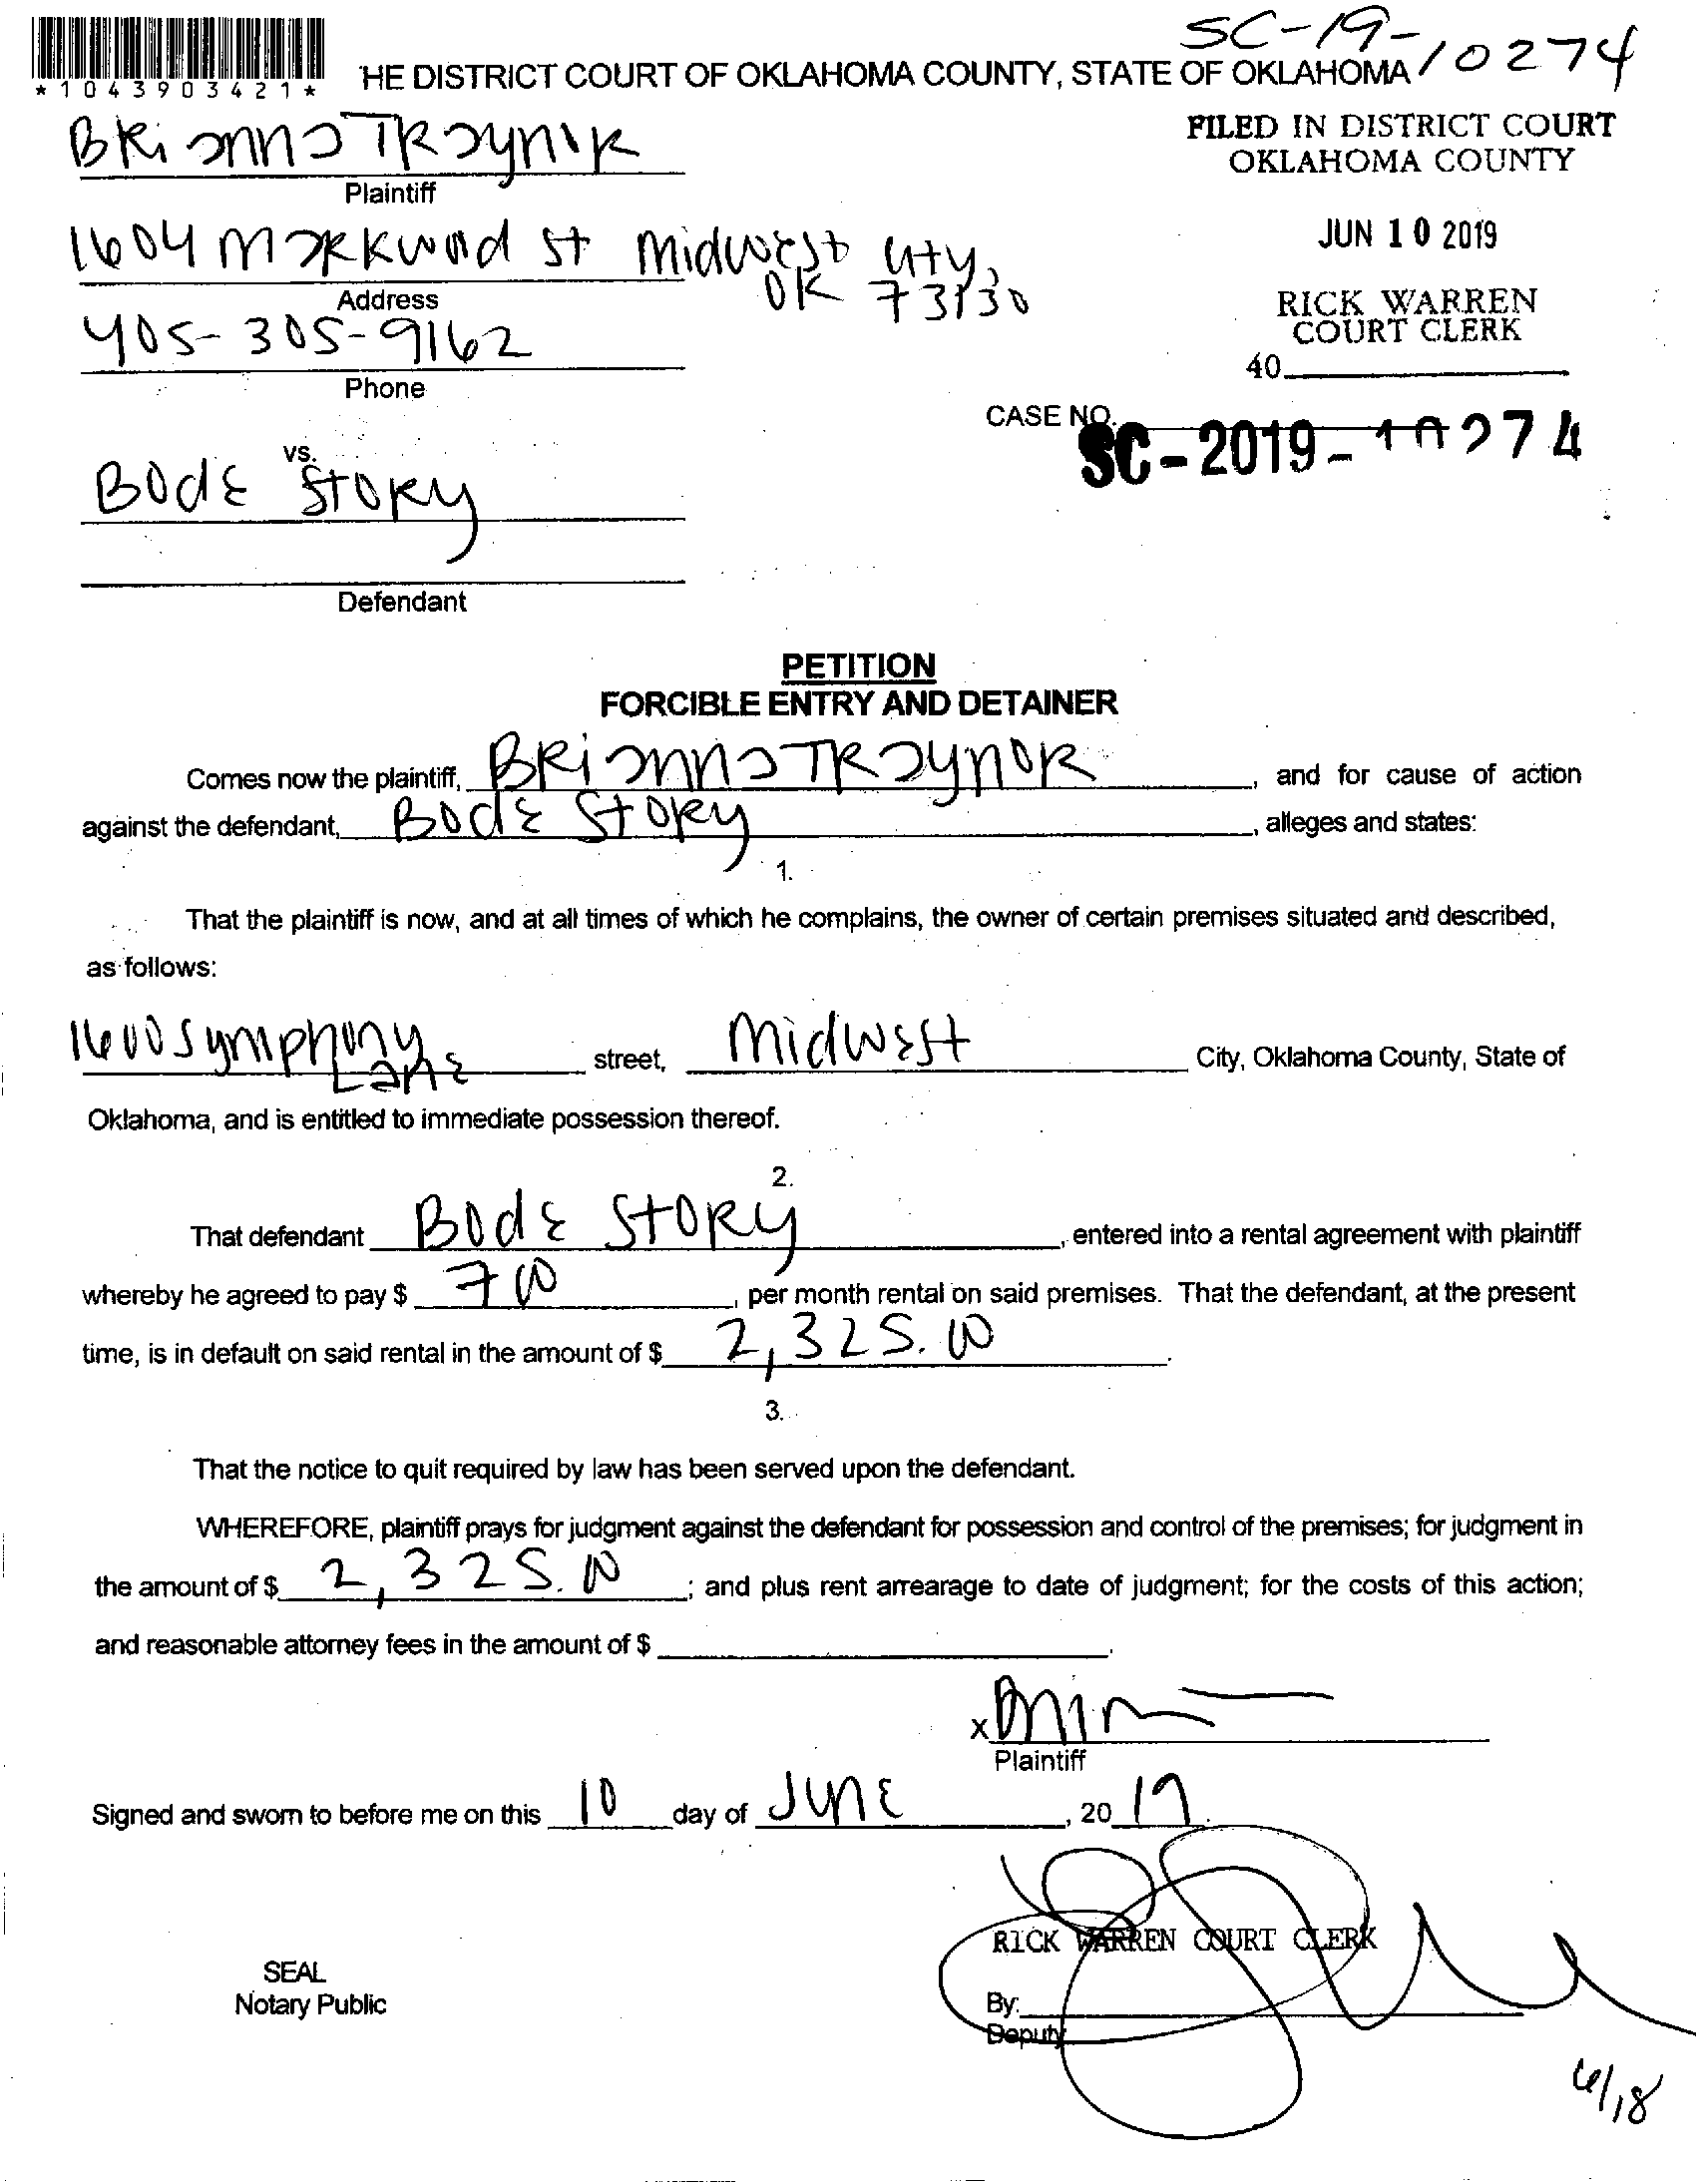 SC-19-10274
*1043903421*
HE DISTRICT COURT OF OKLAHOMA COUNTY, STATE OF OKLAHOMA
BRianna TRaynor
Plaintiff
FILED IN DISTRICT COURT
OKLAHOMA COUNTY
JUN 10 2019
RICK WARREN
COURT CLERK
40
1604 Markwood St Midwest City,
OK 73130
Address
405-305-9162
Phone
CASE NO.
SC-2019-10274
vs.
Bode Story
Defendant
PETITION
FORCIBLE ENTRY AND DETAINER
Comes now the plaintiff, BRianna TRaynor, and for cause of action
against the defendant, Bode Story, alleges and states:
1.
That the plaintiff is now, and at all times of which he complains, the owner of certain premises situated and described,
as follows:
1600 Symphony Lane street, Midwest City, Oklahoma County, State of
Oklahoma, and is entitled to immediate possession thereof.
2.
That defendant Bode Story, entered into a rental agreement with plaintiff
whereby he agreed to pay $ 700, per month rental on said premises. That the defendant, at the present
time, is in default on said rental in the amount of $ 2,325.00.
3.
That the notice to quit required by law has been served upon the defendant.
WHEREFORE, plaintiff prays for judgment against the defendant for possession and control of the premises; for judgment in
the amount of $ 2,325.00; and plus rent arrearage to date of judgment; for the costs of this action;
and reasonable attorney fees in the amount of $ .
x
Plaintiff
Signed and sworn to before me on this 10 day of June, 20 19.
RICK WARREN COURT CLERK
SEAL
Notary Public
By:
Deputy
6/18